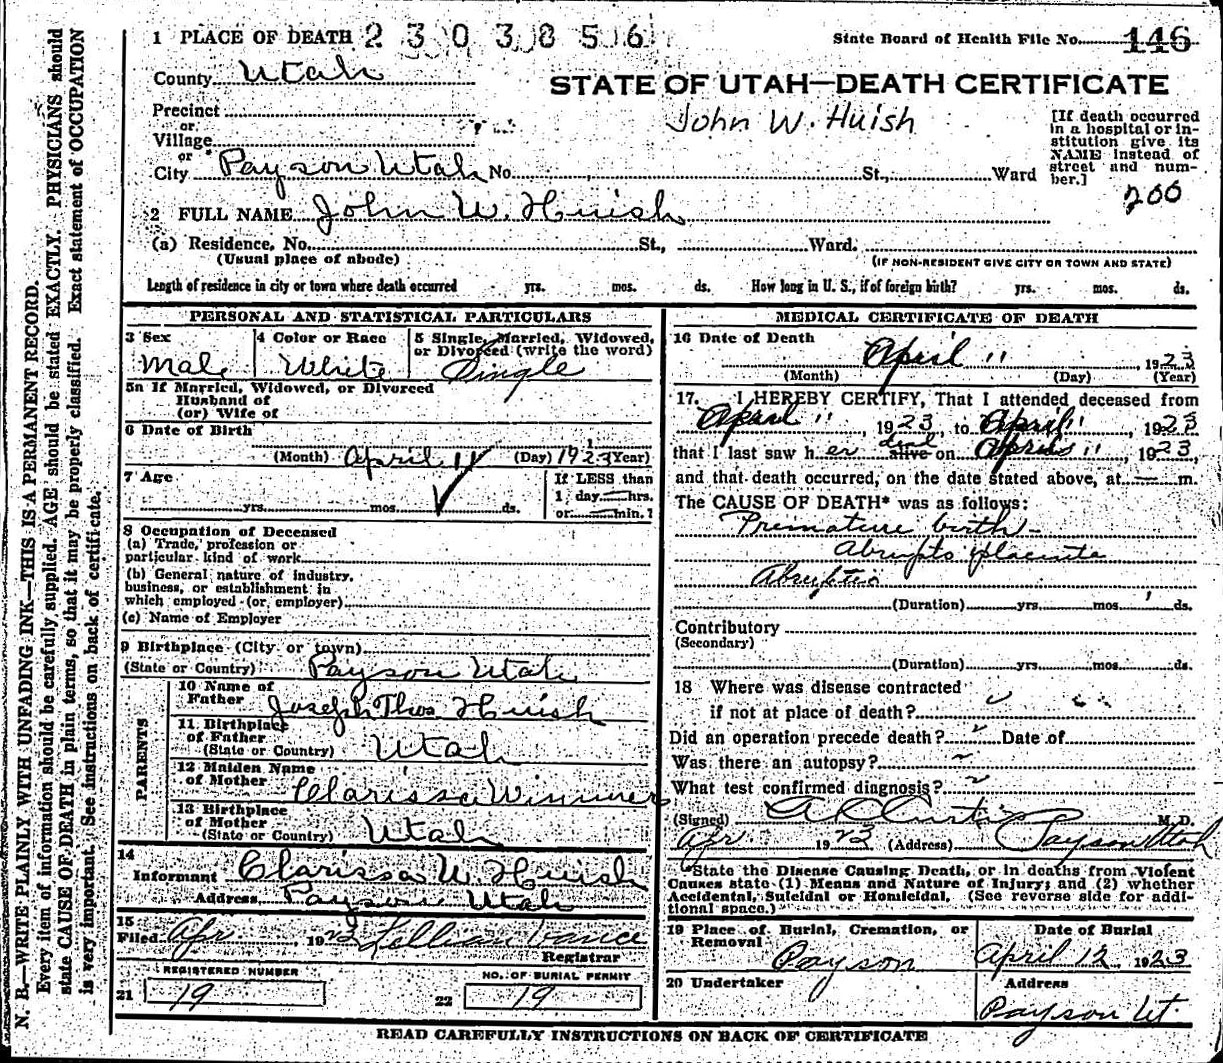 1 PLACE OF DEATH 2 3 0 3 8 5 6
State Board of Health File No. 146
County Utah
STATE OF UTAH—DEATH CERTIFICATE
John W. Huish
Precinct
or
Village
or
City Payson Utah No. St., Ward
[If death occurred
in a hospital or in-
stitution give its
NAME instead of
street and num-
ber.]
200
2 FULL NAME John W. Huish
(a) Residence, No. St., Ward.
(Usual place of abode)
(IF NON-RESIDENT GIVE CITY OR TOWN AND STATE)
Length of residence in city or town where death occurred yrs. mos. ds. How long in U. S., if of foreign birth? yrs. mos. ds.
PERSONAL AND STATISTICAL PARTICULARS
3 Sex
Male
4 Color or Race
White
5 Single, Married, Widowed,
or Divorced (write the word)
Single
5a If Married, Widowed, or Divorced
Husband of
(or) Wife of
6 Date of Birth
(Month) April 11 (Day) 1923 Year)
7 Age
yrs. mos. ds.
If LESS than
1 day hrs.
or min.?
8 Occupation of Deceased
(a) Trade, profession or
particular kind of work
(b) General nature of industry,
business, or establishment in
which employed (or employer)
(c) Name of Employer
9 Birthplace (City or town)
(State or Country) Payson Utah
PARENTS
10 Name of
Father Joseph Thos Huish
11 Birthplace
of Father
(State or Country) Utah
12 Maiden Name
of Mother Clarissa Wimmer
13 Birthplace
of Mother
(State or Country) Utah
14
Informant Clarissa W. Huish
Address Payson Utah
15
Filed Apr , 1923 Vance
Registrar
REGISTERED NUMBER
21 19
NO. OF BURIAL PERMIT
22 19
MEDICAL CERTIFICATE OF DEATH
16 Date of Death
April 11 , 1923
(Month) (Day) (Year)
17. I HEREBY CERTIFY, That I attended deceased from
April 11 , 1923, to April 11 , 1923
that I last saw her alive dead on April 11 , 1923,
and that death occurred, on the date stated above, at m.
The CAUSE OF DEATH* was as follows:
Premature birth
Abrupto placenta
(Duration) yrs. mos. 1 ds.
Contributory
(Secondary)
(Duration) yrs. mos. ds.
18 Where was disease contracted
if not at place of death?
Did an operation precede death? Date of
Was there an autopsy?
What test confirmed diagnosis?
(Signed) A L Curtis M. D.
Apr. 1923 (Address) Payson Utah
*State the Disease Causing Death, or in deaths from Violent
Causes state (1) Means and Nature of Injury; and (2) whether
Accidental, Suicidal or Homicidal. (See reverse side for addi-
tional space.)
19 Place of Burial, Cremation, or
Removal
Payson
Date of Burial
April 12, 1923
20 Undertaker
Address
Payson Ut.
READ CAREFULLY INSTRUCTIONS ON BACK OF CERTIFICATE
N. B.—WRITE PLAINLY WITH UNFADING INK—THIS IS A PERMANENT RECORD.
Every item of information should be carefully supplied. AGE should be stated EXACTLY. PHYSICIANS should
state CAUSE OF DEATH in plain terms, so that it may be properly classified. Exact statement of OCCUPATION
is very important. See instructions on back of certificate.